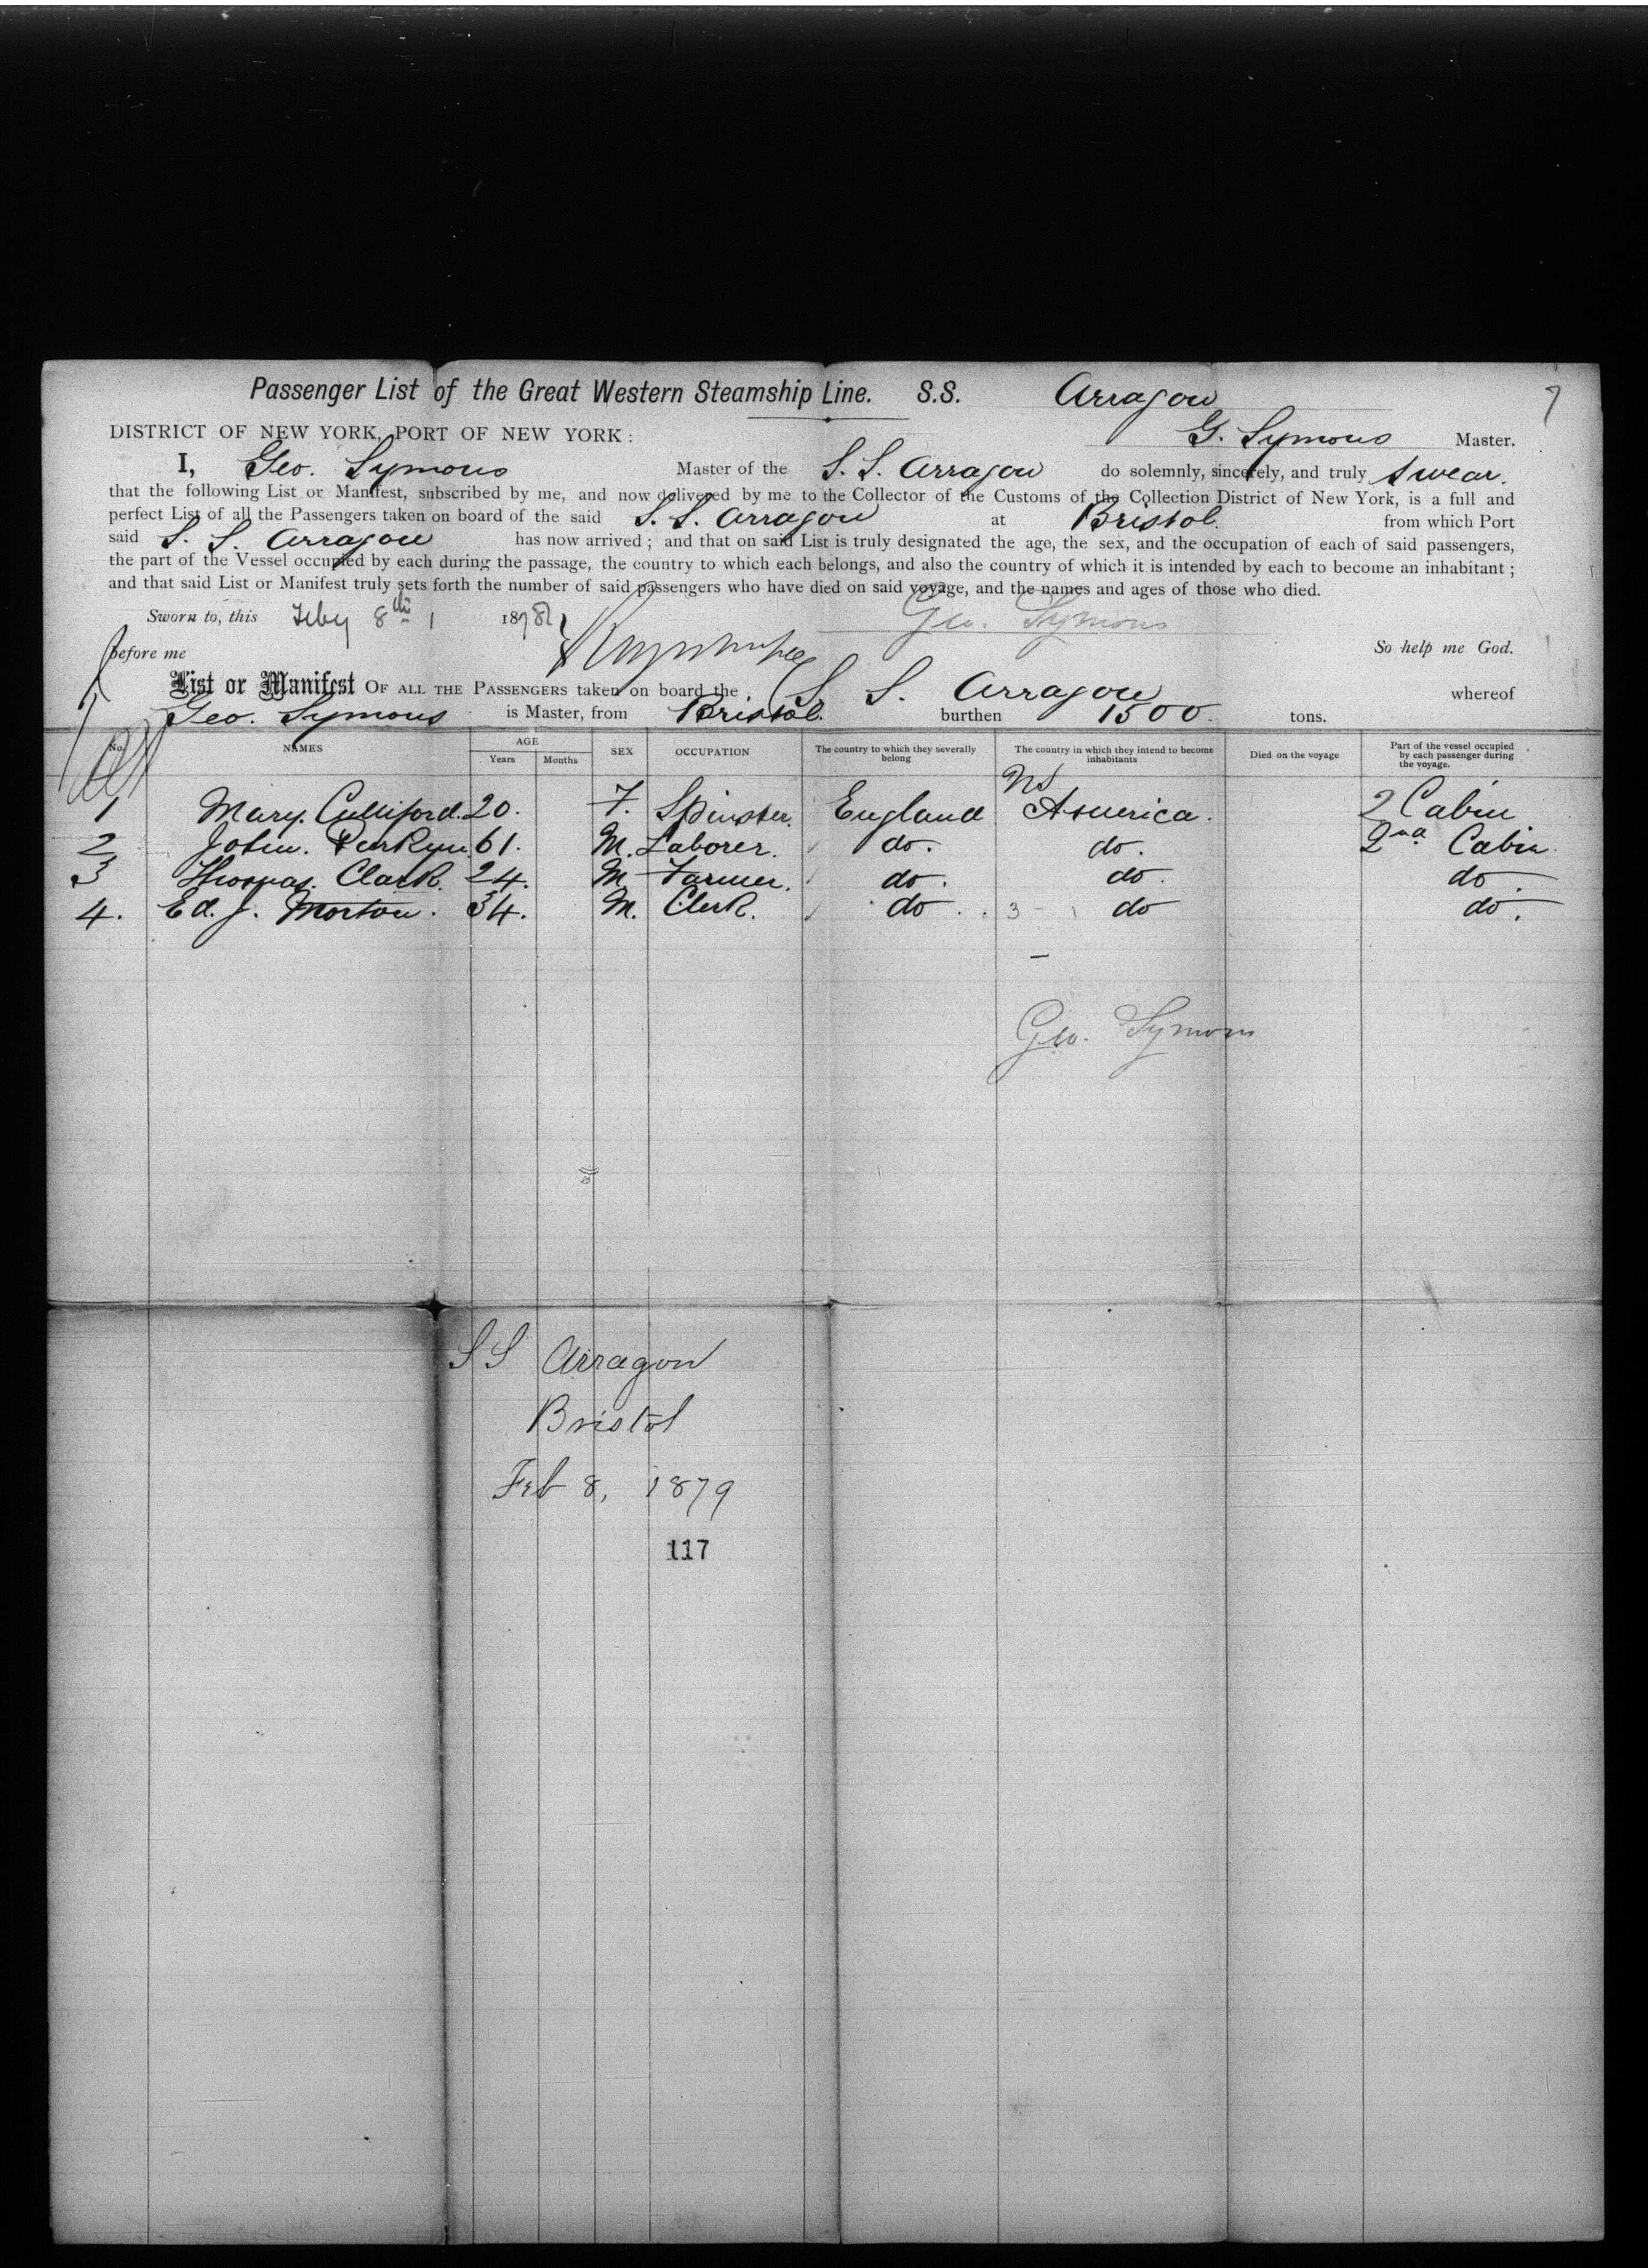 Passenger List of the Great Western Steamship Line. S.S. Arragon
7
DISTRICT OF NEW YORK, PORT OF NEW YORK: G. Symons Master.
I, Geo. Symons Master of the S.S. Arragon do solemnly, sincerely, and truly swear.
that the following List or Manifest, subscribed by me, and now delivered by me to the Collector of the Customs of the Collection District of New York, is a full and
perfect List of all the Passengers taken on board of the said S.S. Arragon at Bristol. from which Port
said S.S. Arragon has now arrived; and that on said List is truly designated the age, the sex, and the occupation of each of said passengers,
the part of the Vessel occupied by each during the passage, the country to which each belongs, and also the country of which it is intended by each to become an inhabitant;
and that said List or Manifest truly sets forth the number of said passengers who have died on said voyage, and the names and ages of those who died.
Sworn to, this Feby 8th 187 Geo. Symons
before me So help me God.
List or Manifest OF ALL THE PASSENGERS taken on board the S S. Arragon whereof
Geo. Symons is Master, from Bristol. burthen 1500. tons.
No. NAMES AGE Years Months SEX OCCUPATION The country to which they severally belong The country in which they intend to become inhabitants Died on the voyage Part of the vessel occupied by each passenger during the voyage.
1 Mary. Culliford. 20. F. Spinster. England America. 2 Cabin
2 John. 61. M. Laborer. do. do. 2nd Cabin
3 Thomas. Clark. 24. M. Farmer. do. do. do.
4. Ed. J. Morton. 34. M. Clerk. do. 3 - 1 do do.
Geo. Symons
S S Arragon
Bristol
Feb 8, 1879
117